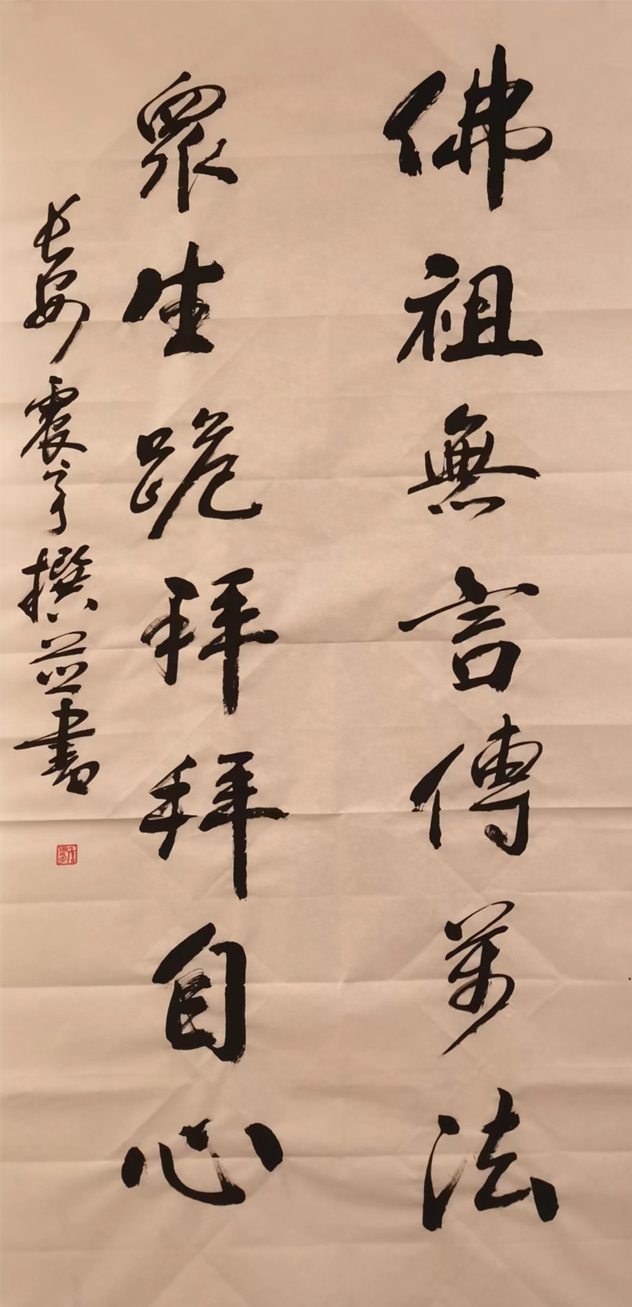 佛祖無言傳萬法
眾生跪拜拜自心
長安震亭撰並書